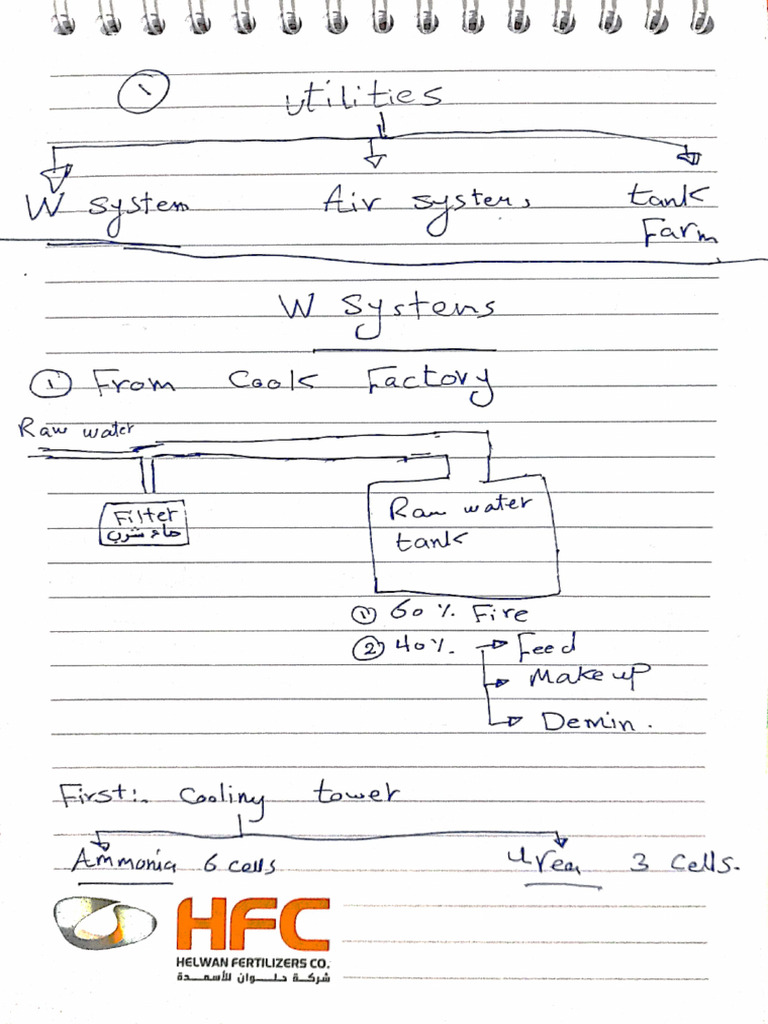 1 utilities
W system Air system, tank
Farm
W Systems
1 From Cook Factory
Raw water
Filter
ماء شرب
Raw water
tank
1 60 % Fire
2 40 %. Feed
Make up
Demin.
First:. Cooliny tower
Ammonia 6 cells Urea 3 Cells.
HFC
HELWAN FERTILIZERS CO.
شركة حلوان للأسمدة